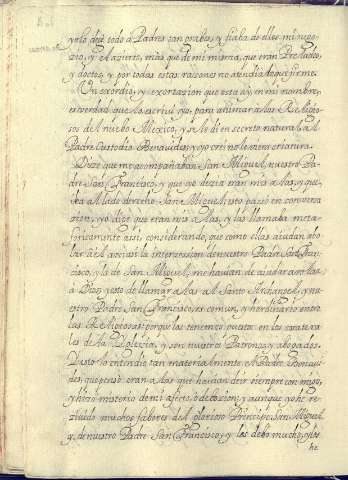 y ato dia todo a Padres tan pombes, y fiaba de elles mi nego-
zio, y el azierto, mas que de mi misma, que eran Preludos,
y doctos, y por todas estas razones no atendia lo que firme.
Un exordio, y exortazion que esta ay en mi nombre,
es verdad que lo escriui yo, para animar a los Religio-
sos del nuebo Mexico, y se lo di en secreto natural al
Padre Custodio Benauides, y yo crei no le mencionara.
Dize que me acompañaban San Miguel, nuestro Pa-
dre San Francisco, y que yo dezia eran mis alas, y que
la al lado derecho San Miguel, esto paso en conversa-
zion, yo dije que eran mis alas, y las llamaba meta-
foricamente assi, considerando, que como ellas ayudan a bo-
lar al a la interzesion de nuestro Padre San Fran-
cisco, y la de San Miguel, me hauian de ayudar a bolar
a Dios, y esto de llamar alas al Santo Archangel, y nu-
estro Padre San Francisco, es comun, y hordinario entre
las Religiosas: porque las tenemos puesta en los colatera-
les de la Iglesia, y son nuestros Patronos, y abogados.
Pusto lo entendio tan materialmente el Padre Benaui-
des, que penso eran alas que hauian de ir siempre con migo,
y hizo misterio de mi afecto, o debozion; y aunque yo he re-
ziuido muchos fabores del glorioso Principe San Miguel
y de nuestro Padre San Francisco, y les debo mucho, y los
he